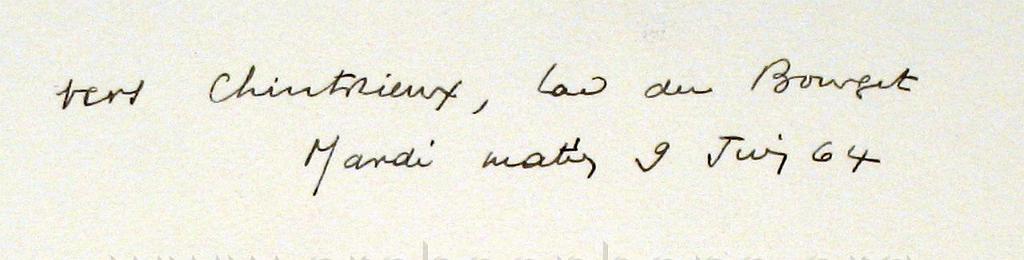 vers Chintrieux, Lac du Bourget
Mardi matin 9 Juin 64